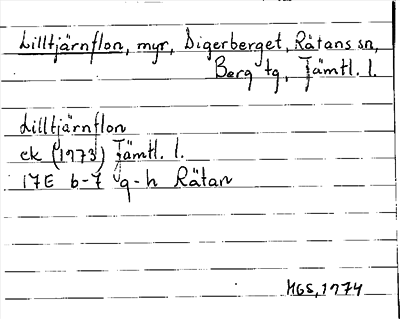 Lilltjärnflon, myr, Digerberget, Rätans sn,
Berg tg, Jämtl. l.
Lilltjärnflon
ek (1973) Jämtl. l.
17E 6-7 g-h Rätan
MGS, 1974